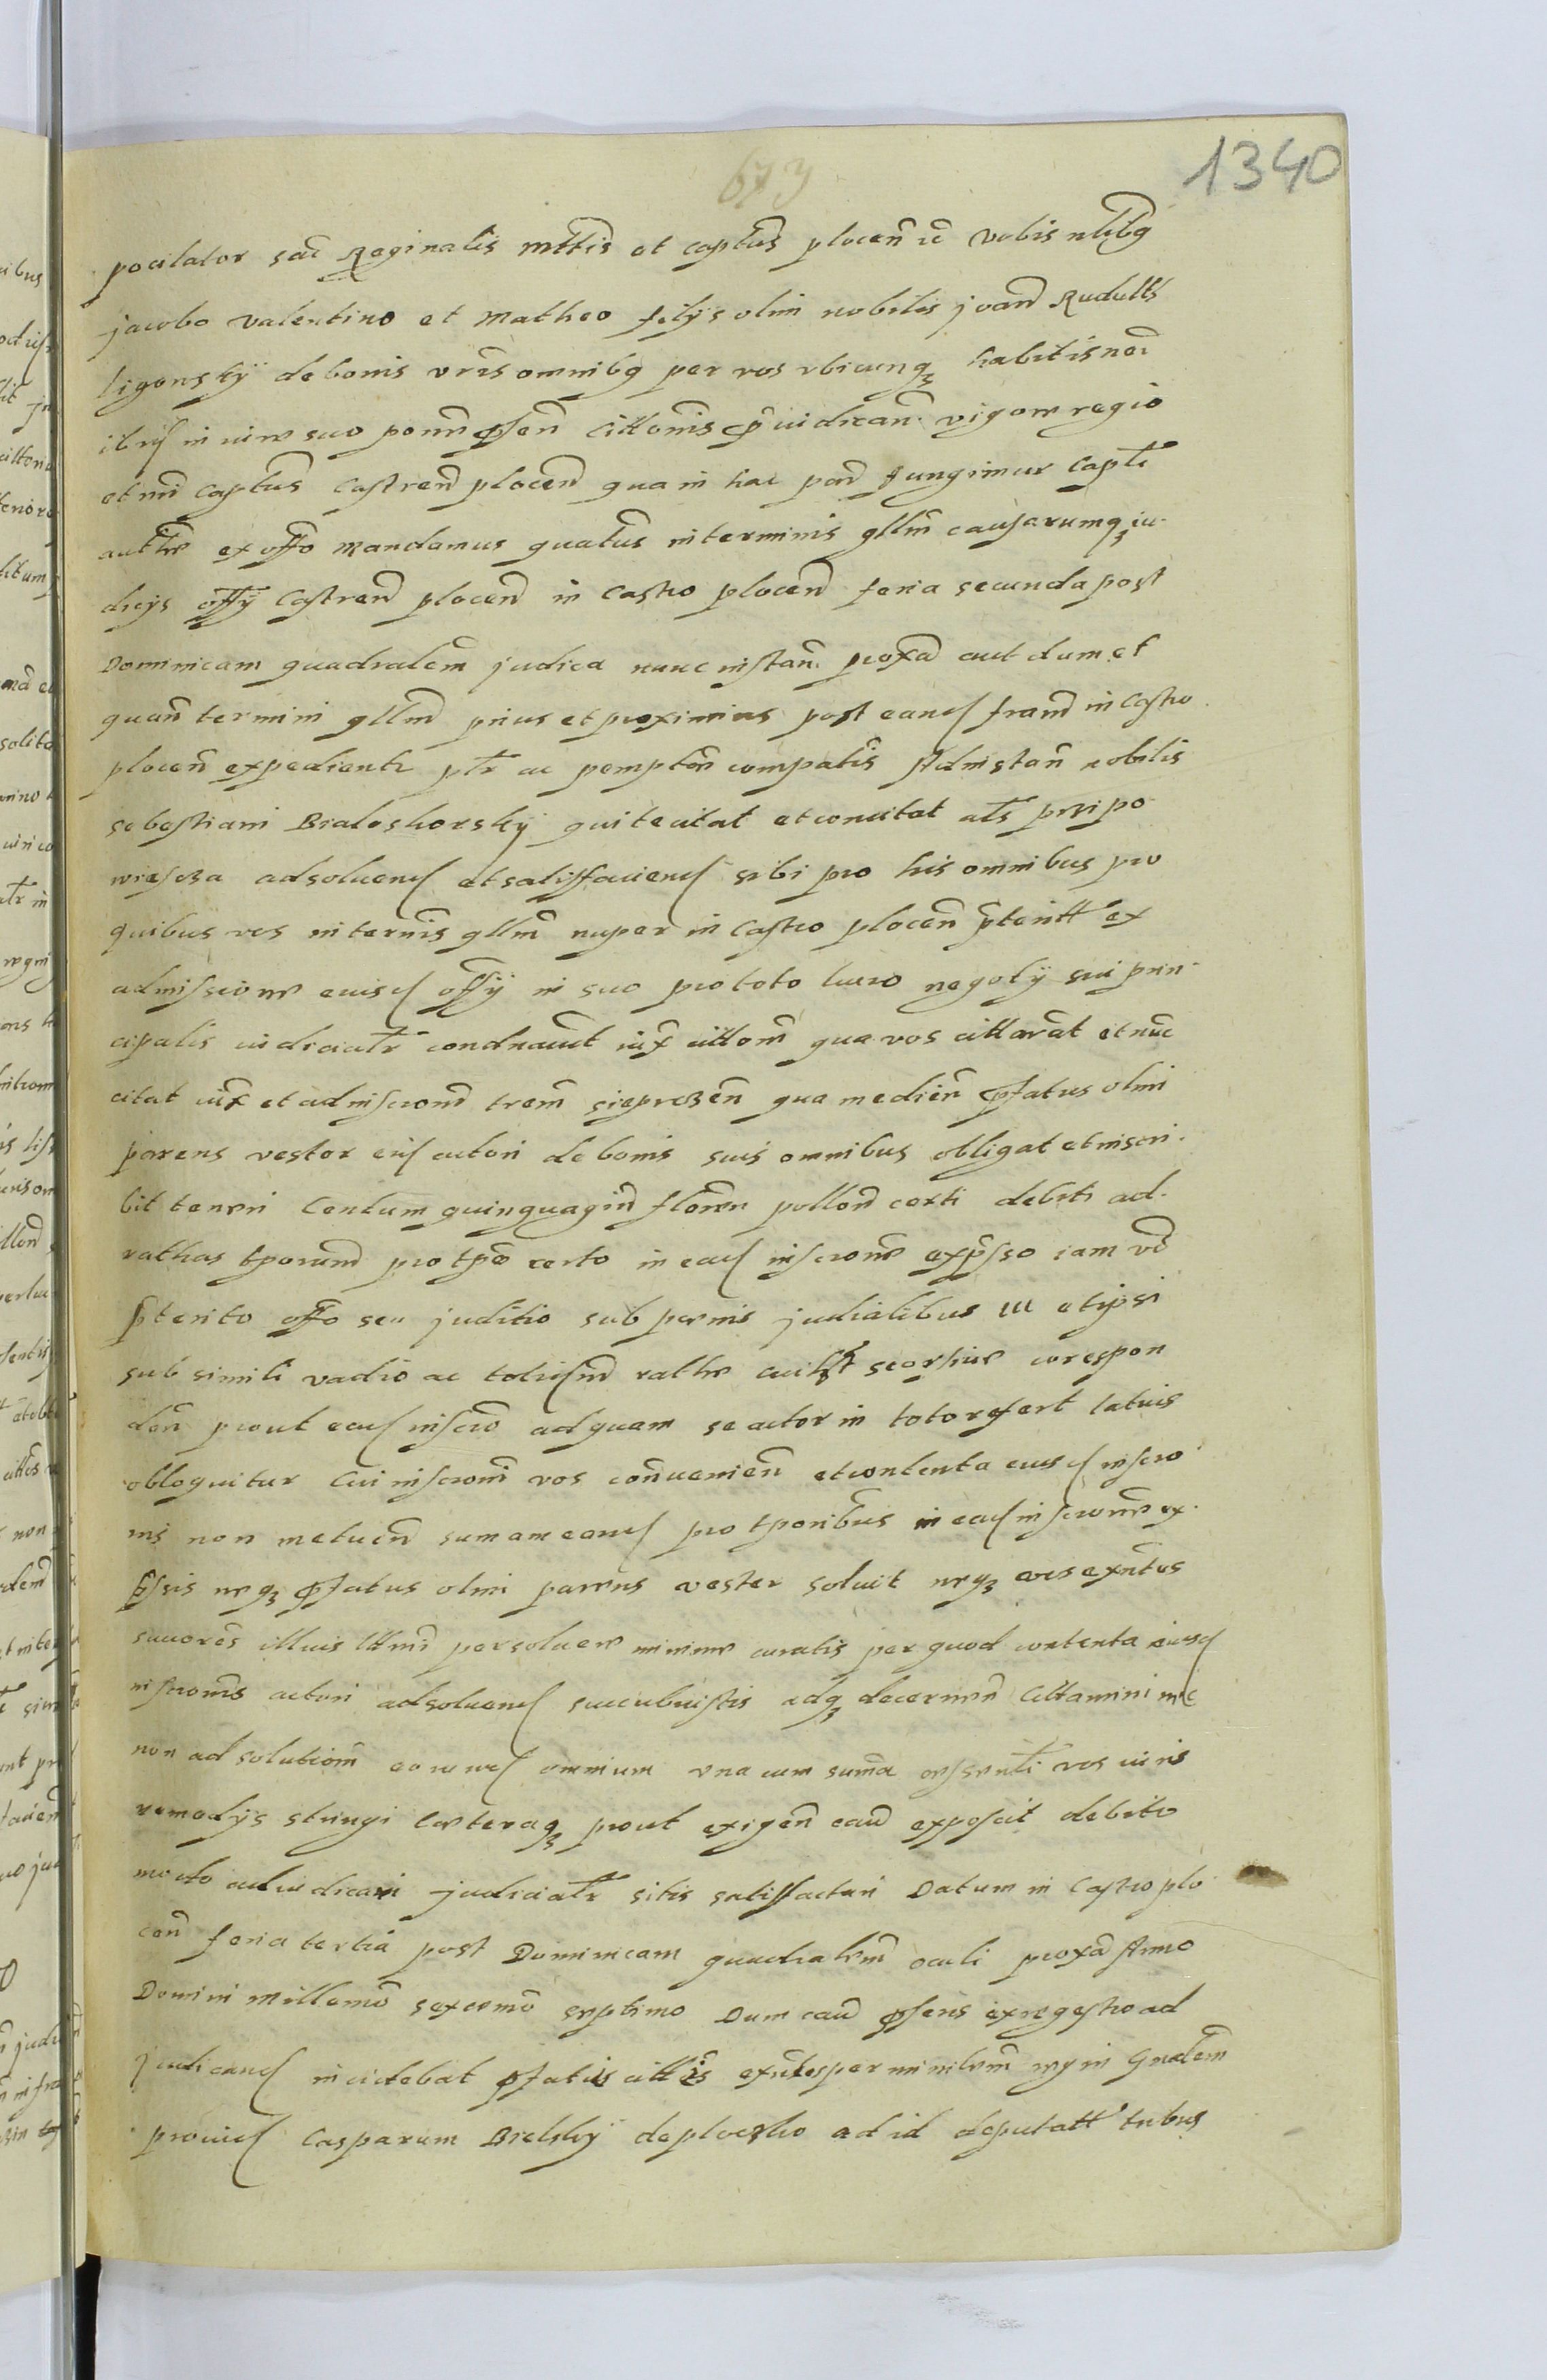 673
1340
pocilator sac Reginalis Mttis et capts plocen ic vobis nlibq
Jacobo valentino et Matheo filÿs olim nobilis Joan Rudults
ligonskÿ de bonis vris omnibq per vos vbicunq habitis nec
in iure suo pome psen cittonis pviudican. vigore regio
et mei captus castren plocen qua in hac par fungimur capti
autte ex offo Mandamus quatus in terminis gllm causarumq iu
dicÿs offÿ Castren plocen in Castro plocen feria secunda post
Dominicam quadralem judica nunc instan. proxa aut dum et
quan termini gllm prius et proximius post eand fram in Castro
plocen expedientr ptr ac pempten compatis Ad instan nobilis
sebastiani Bialoskorskÿ qui te citat et concitat als przipo
wiescza ad soluend et satisfaciend sibi pro his omnibus pro
quibus vos in termis gllm nuper in Castro plocen pteritt ex
admissione eiusd offÿ in suo pro toto lucro negotÿ sui prin
cipalis iudiciatr condnauit iux cittom qua vos cittarat et nuc
citat iux et ad inscrionem trem qua median pfatus olim
parens vester eid actori de bonis suis omnibus obligat et inscri
bit teneri Centum quinquagin floren pollon certi debiti ad
rathas tporum pro tpe certo in ead inscrione expsso iam vo
pterito offo seu juditio sub penis judicialibus III et ipsi
sub simili vadio ac toties rathe cuilt seorsiue corespon
den prout ead inscrio ad quam se actor in toto refert latius
obloquitur Cui inscrioni vos conuenien et contenta eiusd inscrio
nis non metuen sumam eand pro tporibus in ead inscrione ex
pssis neq pfatus olim parens vester soluit neq vos exntes
sucores illius persoluere minime curatis per quod contenta eiusd
inscrionis actori ad soluend succubuistis idq decernen Cittamini nec
non ad solutiom eorund omnium vna cum suma vos iuris
remedÿs stringi Ceteraq prout exigen cau exposcit debito
modo adiudicari judiciatr sitis satisfacturi Datum in Castro plo
cen feria tertia post Dominicam quadralem oculi proxa Anno
Domini Millemo sexcemo septimo Dum cau psens ex regestro ad
judicand incidebat pfatis cittis exntes per minitrem regni Gnalem
prouid Casparum Bielskÿ de ploczko ad id deputatt tribus